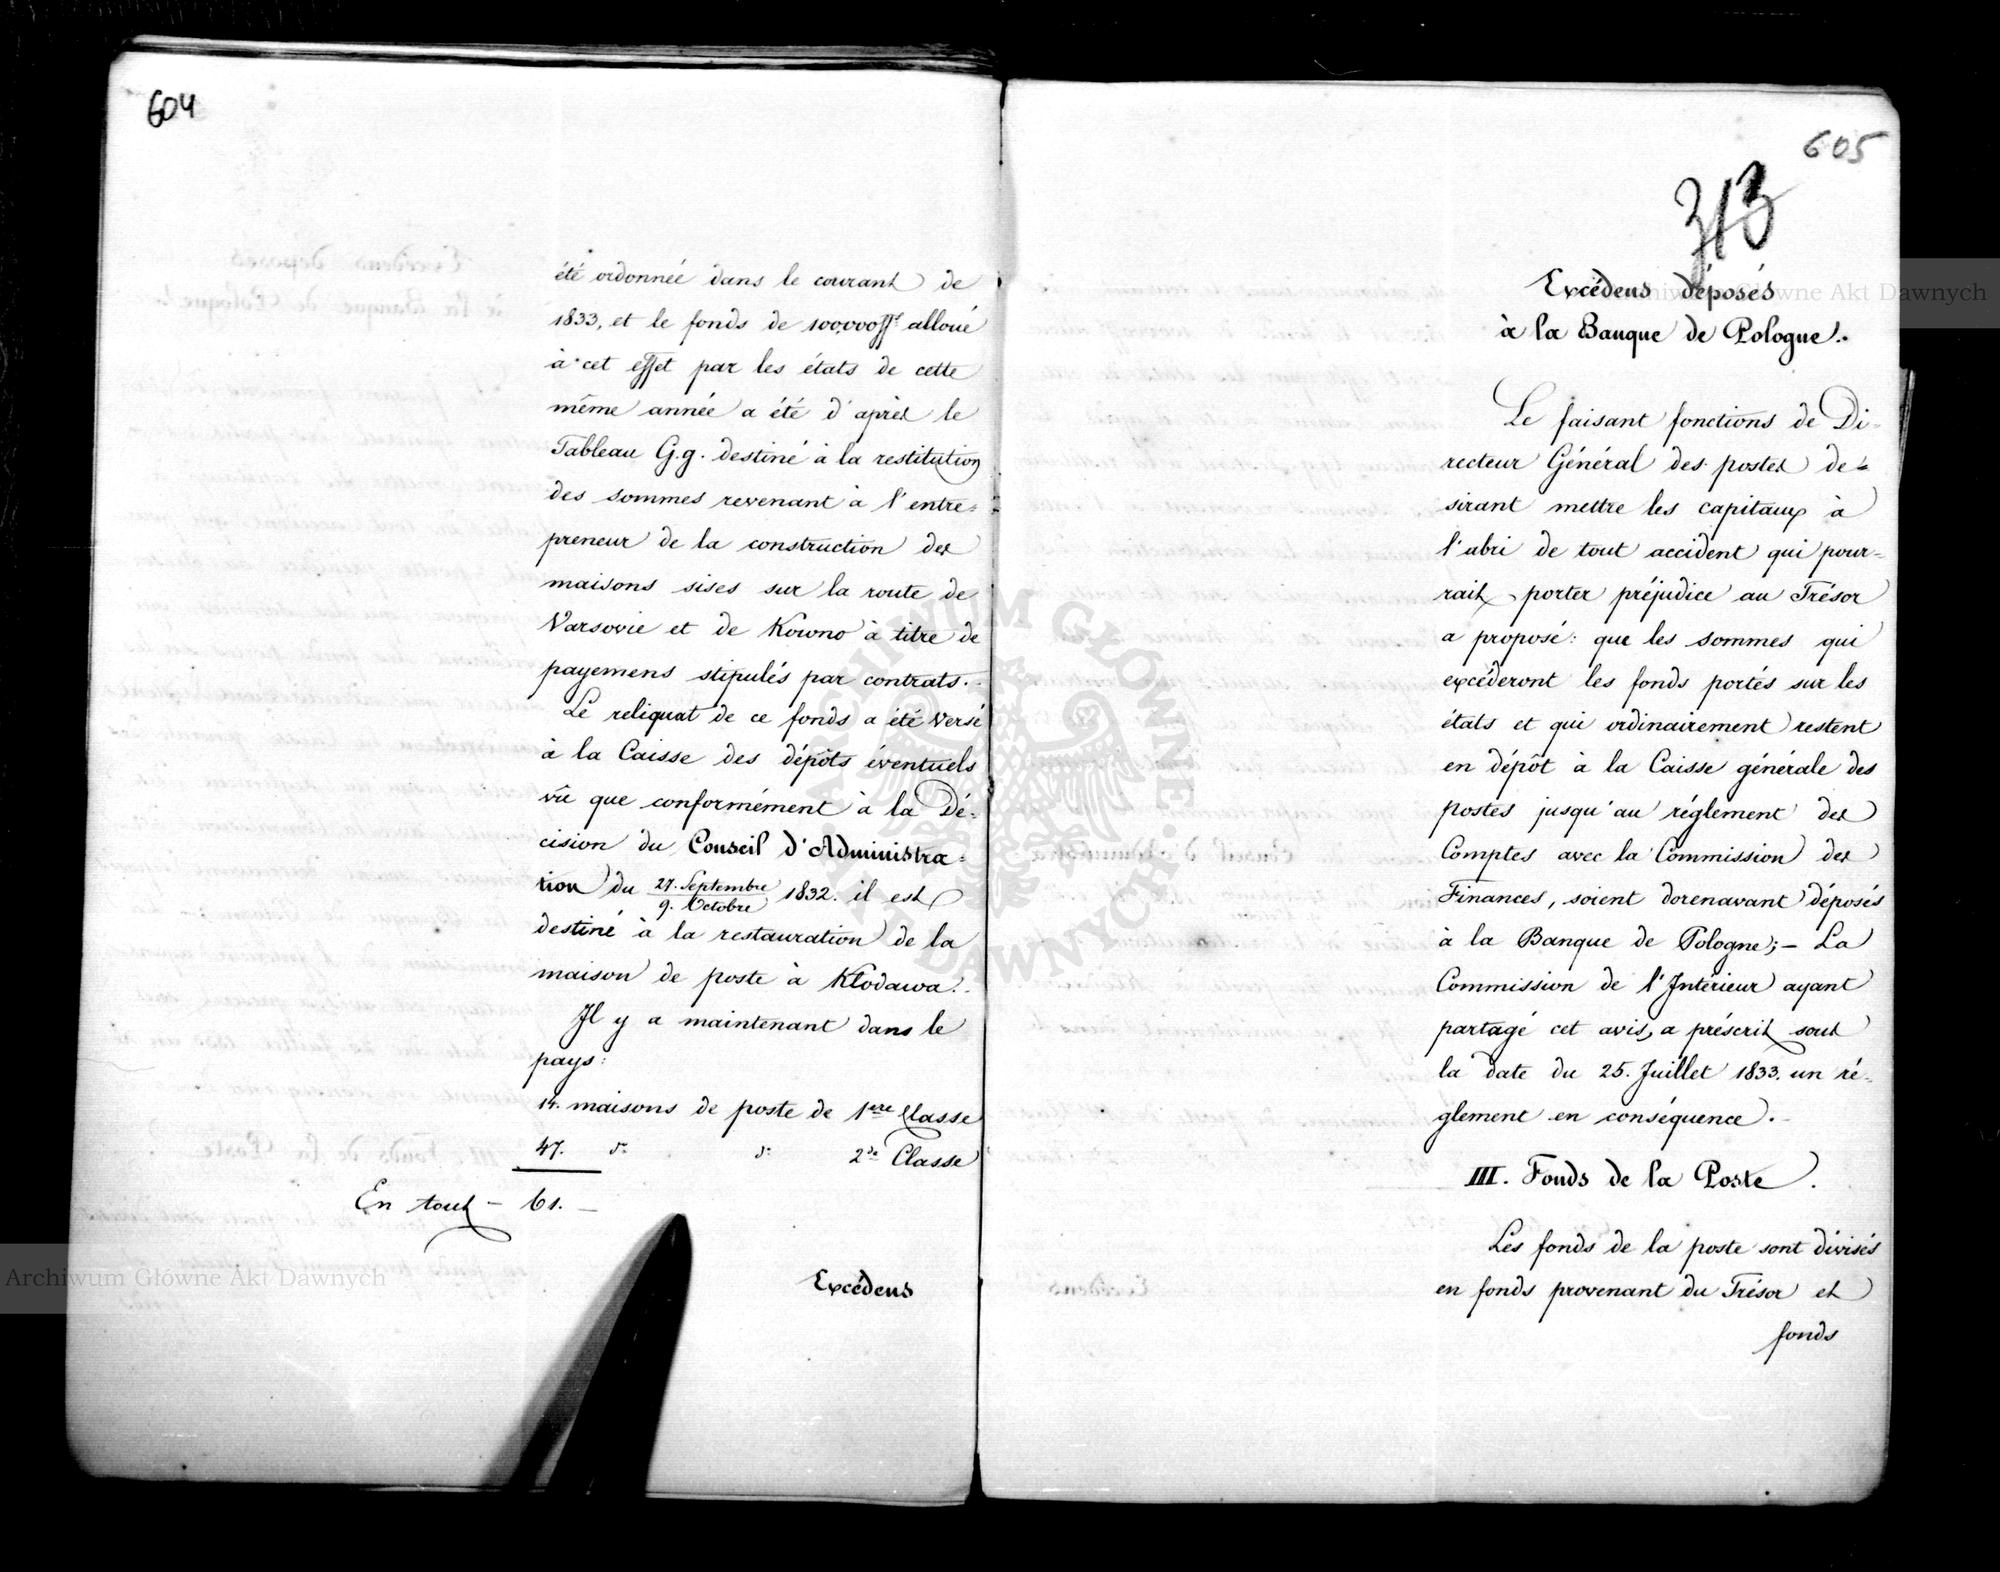 604
été ordonnée dans le courant de
1833, et le fonds de 100,000 ffs alloué
à cet effet par les états de cette
même année a été d'après le
Tableau G.g. destiné à la restitution
des sommes revenant à l'entre-
preneur de la construction des
maisons sises sur la route de
Varsovie et de Kowno à titre de
payemens stipulés par contrats.
Le reliquat de ce fonds a été versé
à la Caisse des dépôts éventuels
vû que conformément à la Dé-
cision du Conseil d'Administra-
tion du 27. Septembre / 9. Octobre 1832. il est
destiné à la restauration de la
maison de poste à Kłodawa.
Il y a maintenant dans le
pays:
14. maisons de poste de 1ère Classe
47. do do 2de Classe
En tout – 61. –
Excédens
605
313
Excédens déposés
à la Banque de Pologne.
Le faisant fonctions de Di-
recteur Général des postes de-
sirant mettre les capitaux à
l'abri de tout accident qui pour-
rait porter préjudice au Trésor
a proposé: que les sommes qui
excéderont les fonds portés sur les
états et qui ordinairement restent
en dépôt à la Caisse générale des
postes jusqu'au réglement des
Comptes avec la Commission des
Finances, soient dorenavant déposés
à la Banque de Pologne; – La
Commission de l'Intérieur ayant
partagé cet avis, a préscrit sous
la date du 25. Juillet 1833. un ré-
glement en conséquence.
III. Fonds de la Poste.
Les fonds de la poste sont divisés
en fonds provenant du Trésor et
fonds
Archiwum Główne Akt Dawnych
Archiwum Główne Akt Dawnych
ARCHIWUM GŁÓWNE AKT DAWNYCH